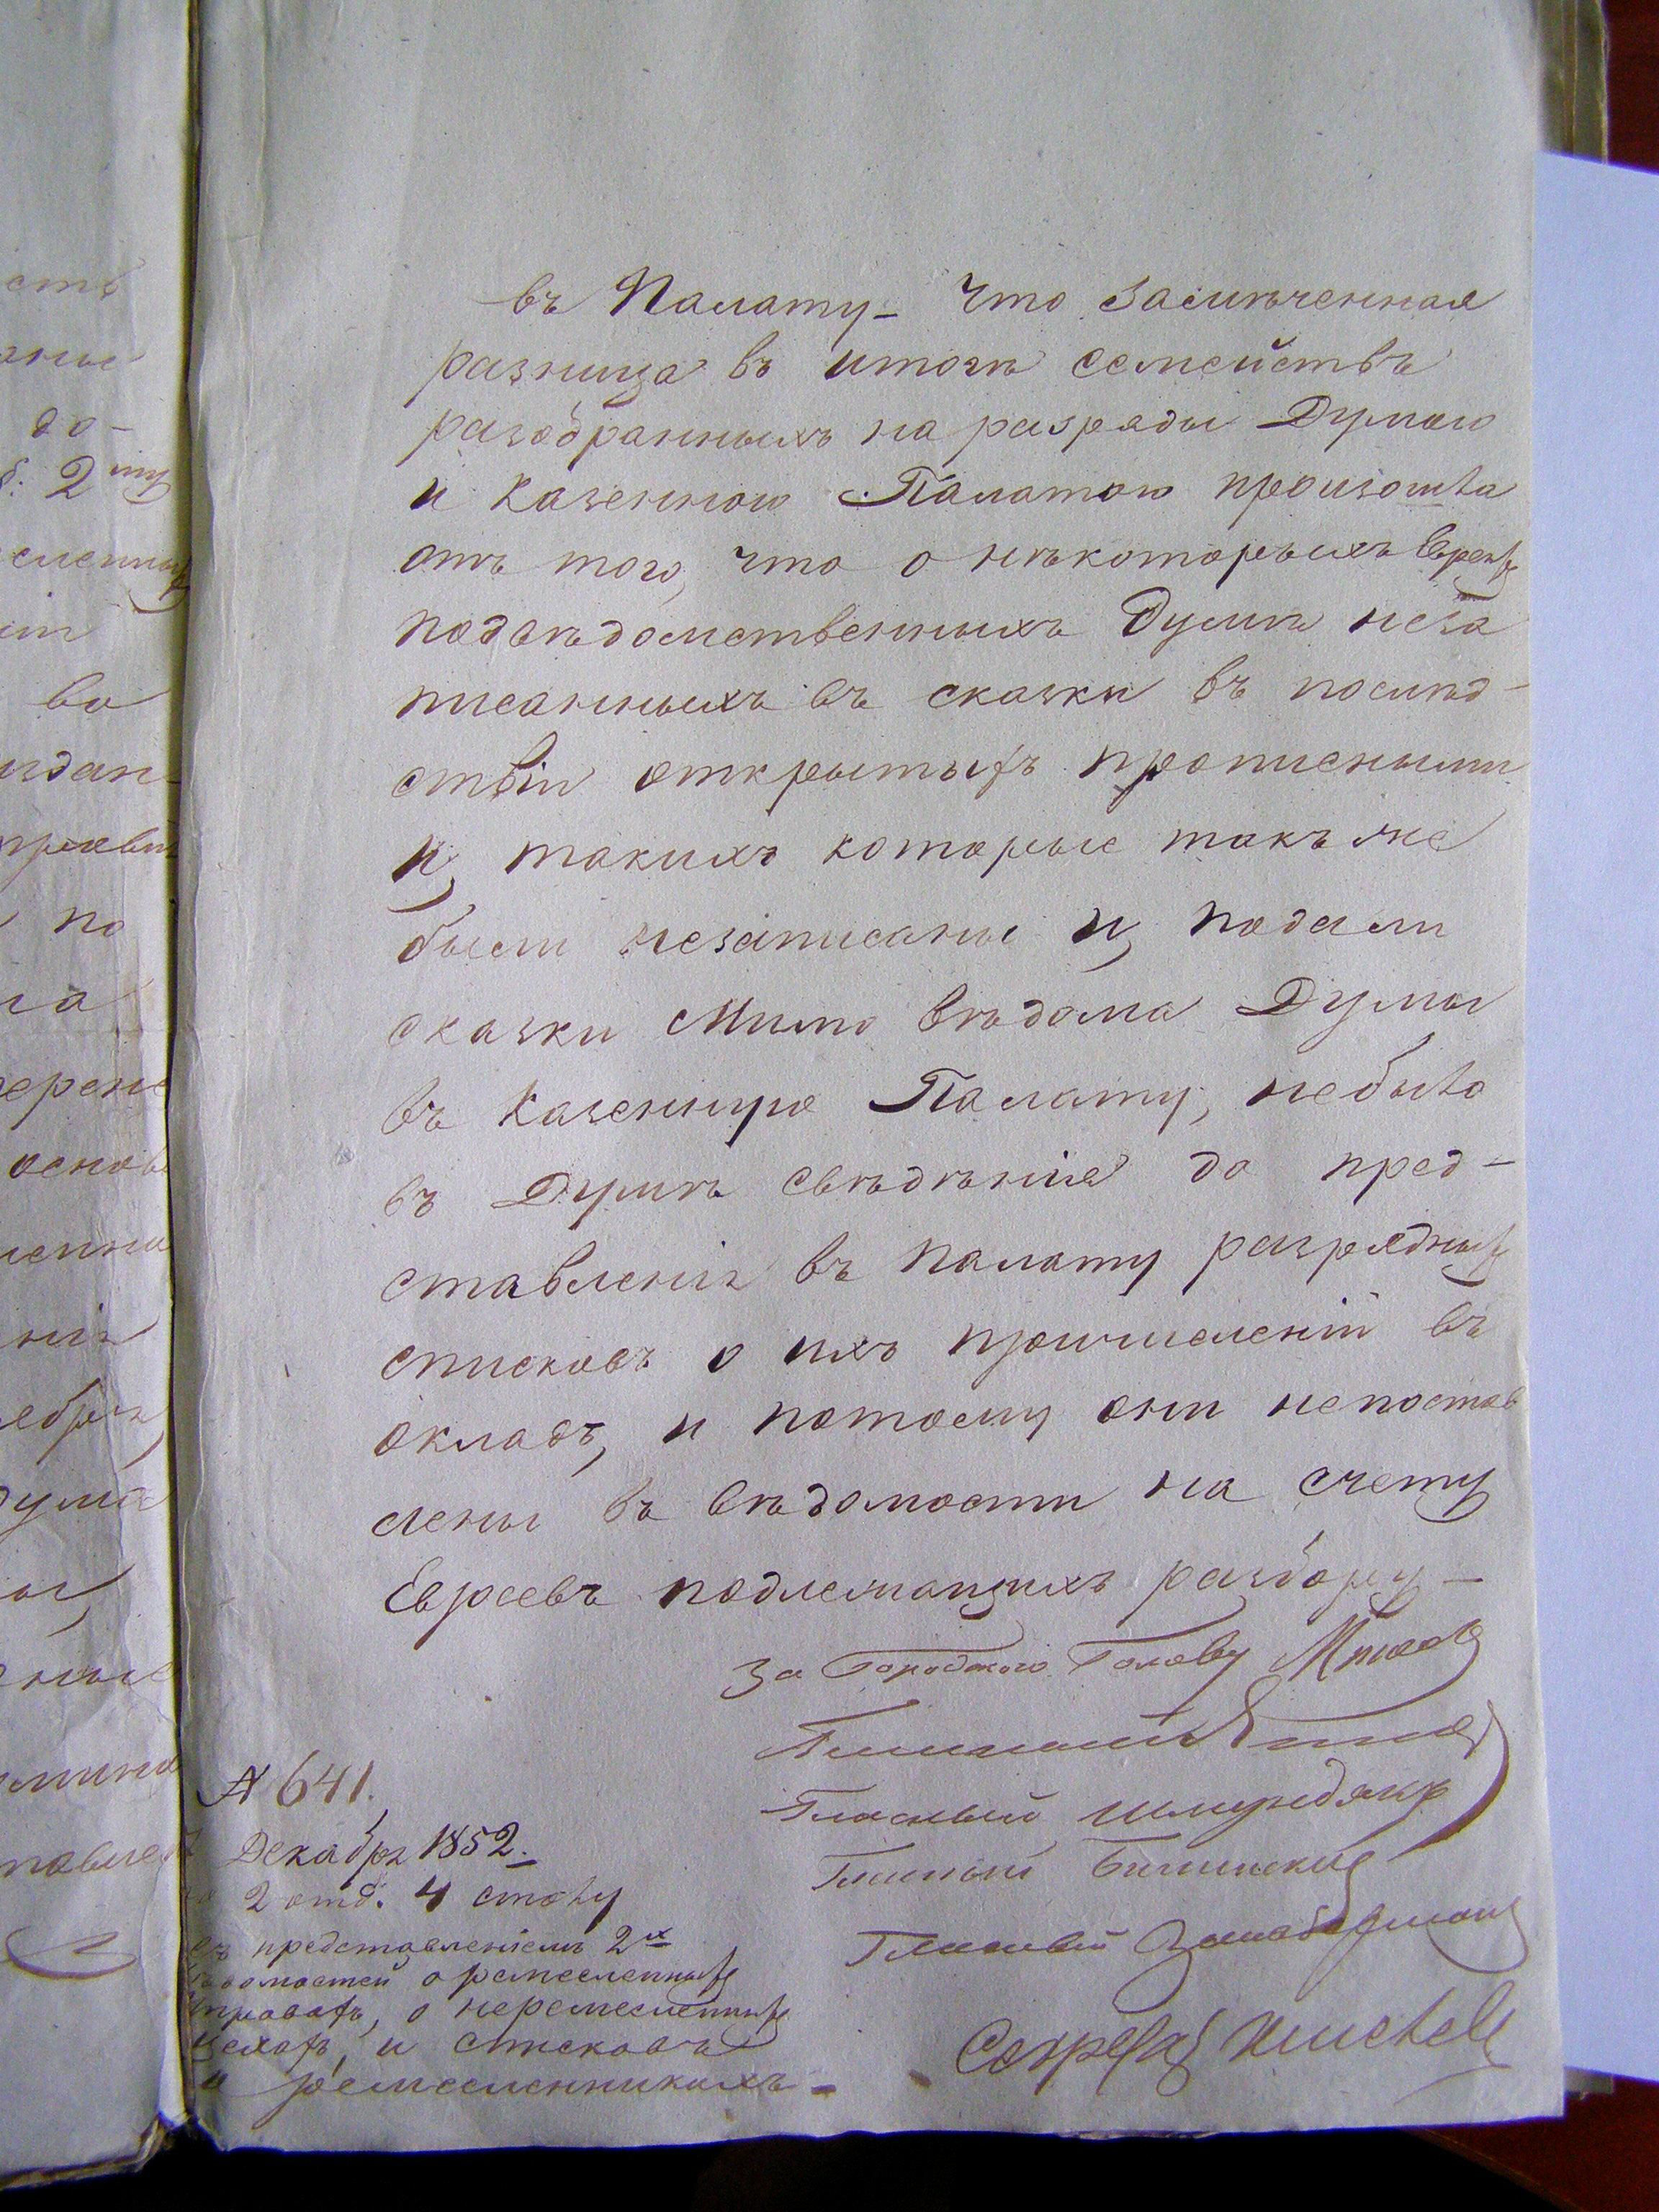 въ Палату – что замѣченная
разница въ итогѣ семействъ
разобранныхъ на разряды Думою
и Казенною Палатою произошла
отъ того, что о нѣкоторыхъ Евреях
подвѣдомственныхъ Думѣ неза
писанныхъ въ сказки въ послѣд-
ствіи открытыхъ прописными
и, такихъ которые такъ же
были незаписаны и, подали
сказки мимо вѣдома Думы
въ Казенную Палату, небыло
въ Думѣ свѣдѣнія до пред-
ставленія въ палату разрядных
списковъ о ихъ причисленіи въ
окладъ, и потому они непостав
лены въ вѣдомости на счету
Евреевъ подлежащихъ разбору –
За Городского Голову
Гласный
Гласный
Гласный
Гласный
Секретарь
№ 641.
Декабря 1852.
2 отд. 4 столу
съ представленіемъ 2х
вѣдомостей о ремесленных
управах, о неремесленных
цехахъ, и списковъ
о ремесленникахъ –
сть
до-
2
во
по
на